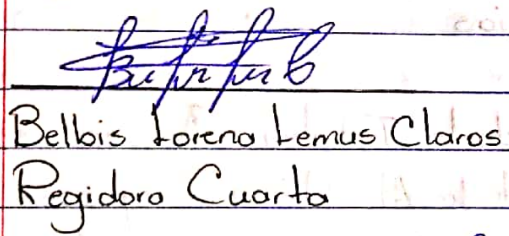 Belbis Lorena Lemus Claros
Regidora Cuarta